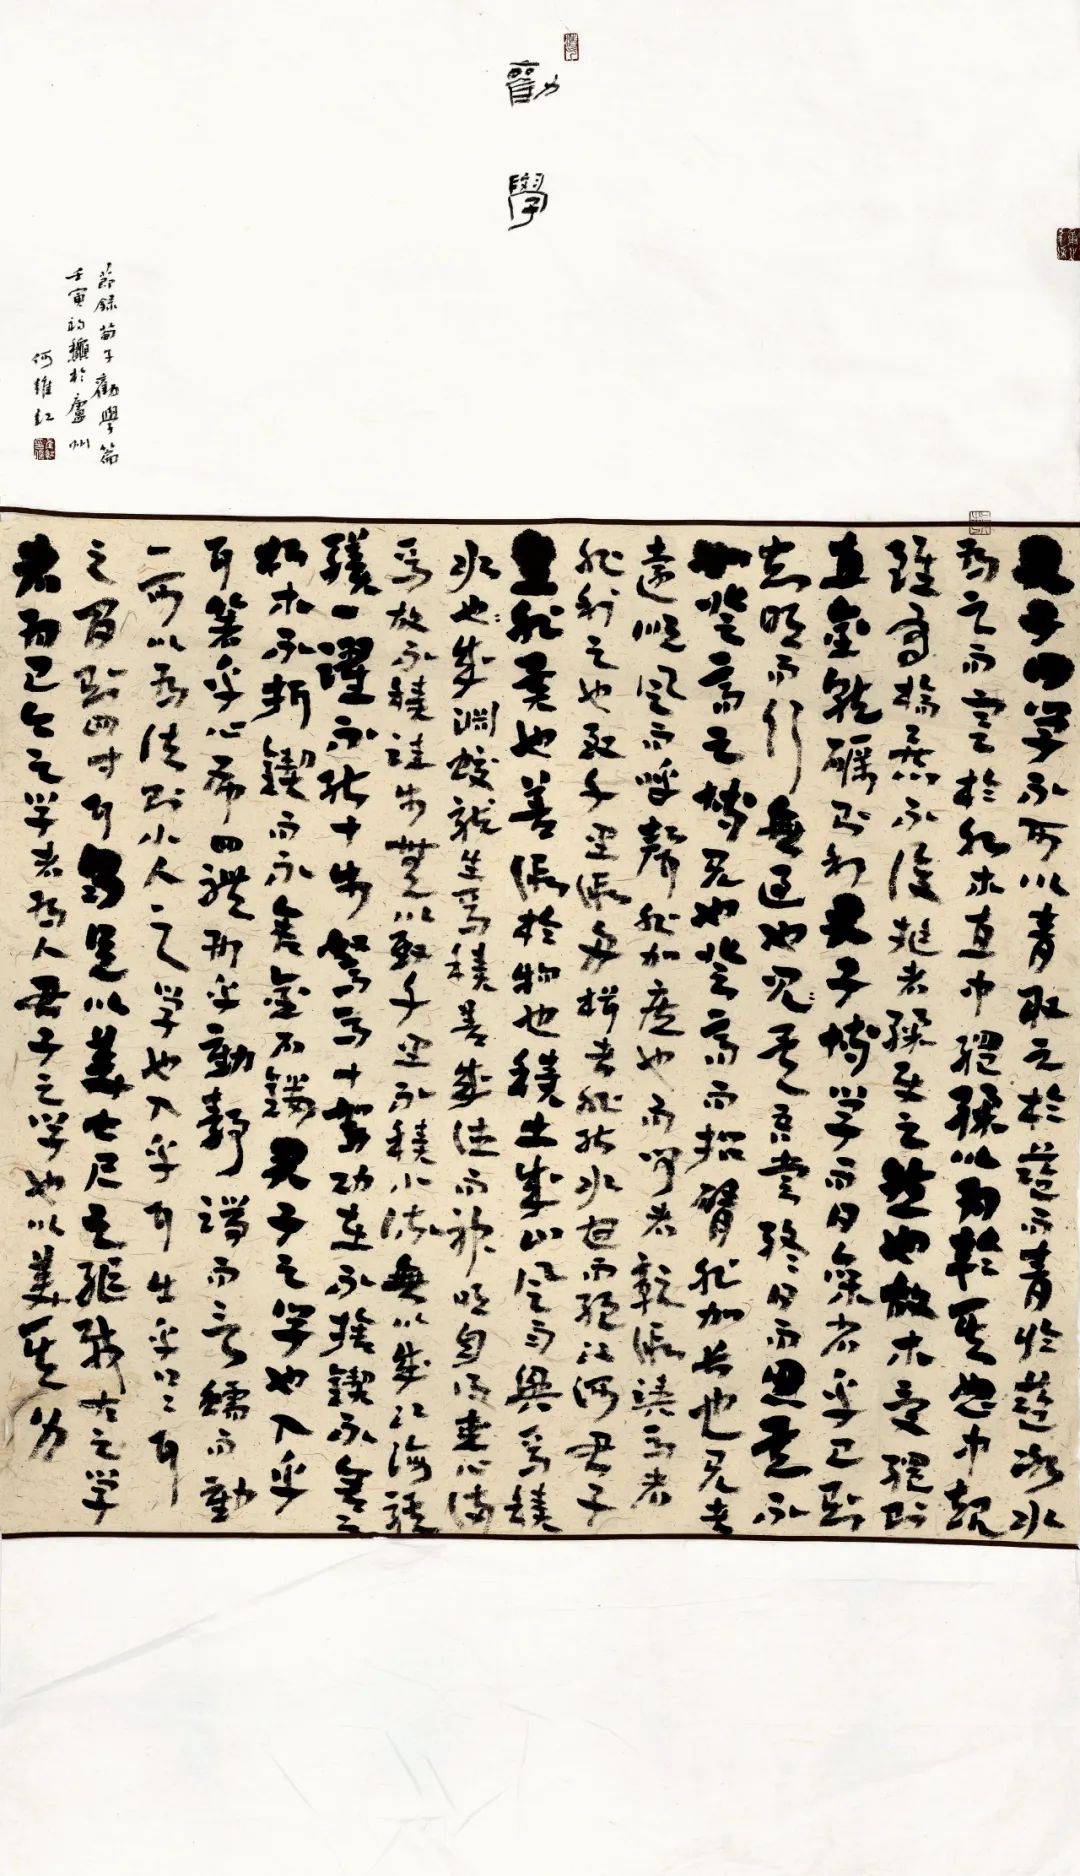 勸學
節錄荀子勸學篇
壬寅初龝於廬州
何維紅
君子曰學不可以青取之於藍而青於藍冰水
為之而寒於水木直中繩輮以為輪其曲中規
雖有槁暴不復挺者輮使之然也故木受繩則
直金就礪則利君子博學而日參省乎己則
知明而行無過也吾嘗終日而思矣不
如登高之博見也登高而招臂非加長也見者
遠順風而呼聲非加疾也而聞者彰假輿馬者
非利足也致千里假舟楫者非能水也而絕江河君子
生非異也善假於物也積土成山風雨興焉積
水也成淵蛟龍生焉積善成德而神明自得聖心備
焉故不積跬步無以致千里不積小流無以成江海騏
驥一躍不能十步駑馬十駕功在不捨鍥不舍之
朽木不折鍥而不舍金石鏤君子之學也入乎
耳箸乎心布四體形乎動靜端而言蝡而動
一可以為法則小人之學也入乎耳出乎口口耳
之間則四寸耳曷足以美七尺之軀哉古之學
者為己今之學者為人君子之學也以美其身